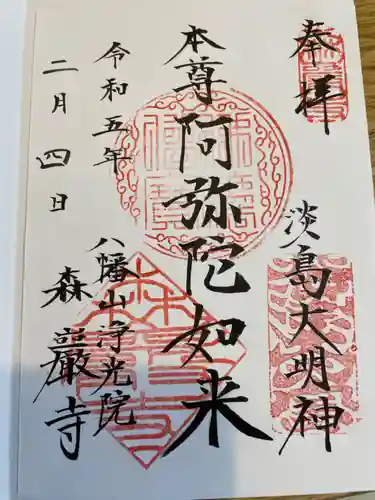 奉拝
淡島大明神
本尊阿弥陀如来
令和五年
二月四日
八幡山浄光院
森巖寺